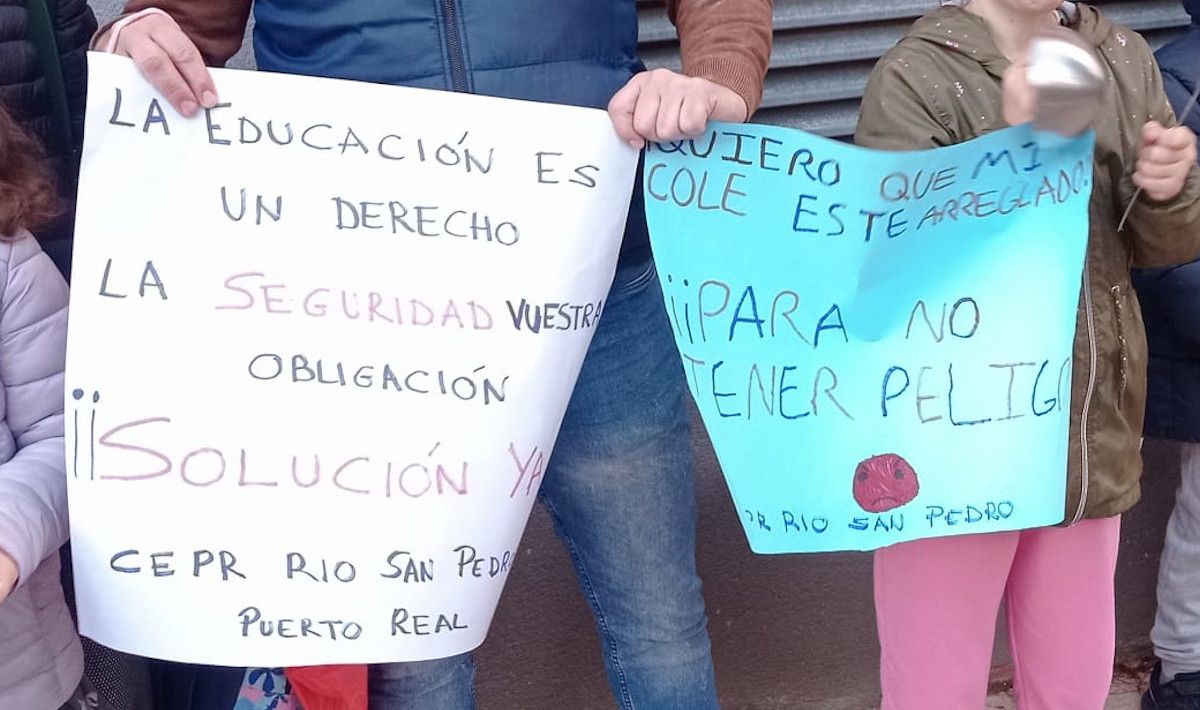 LA EDUCACIÓN ES
UN DERECHO
LA SEGURIDAD VUESTRA
OBLIGACIÓN
¡¡SOLUCIÓN YA
CEPR RIO SAN PEDRO
PUERTO REAL
QUIERO QUE MI
COLE ESTE ARREGLADO!
¡¡PARA NO
TENER PELIG
PR RIO SAN PEDRO